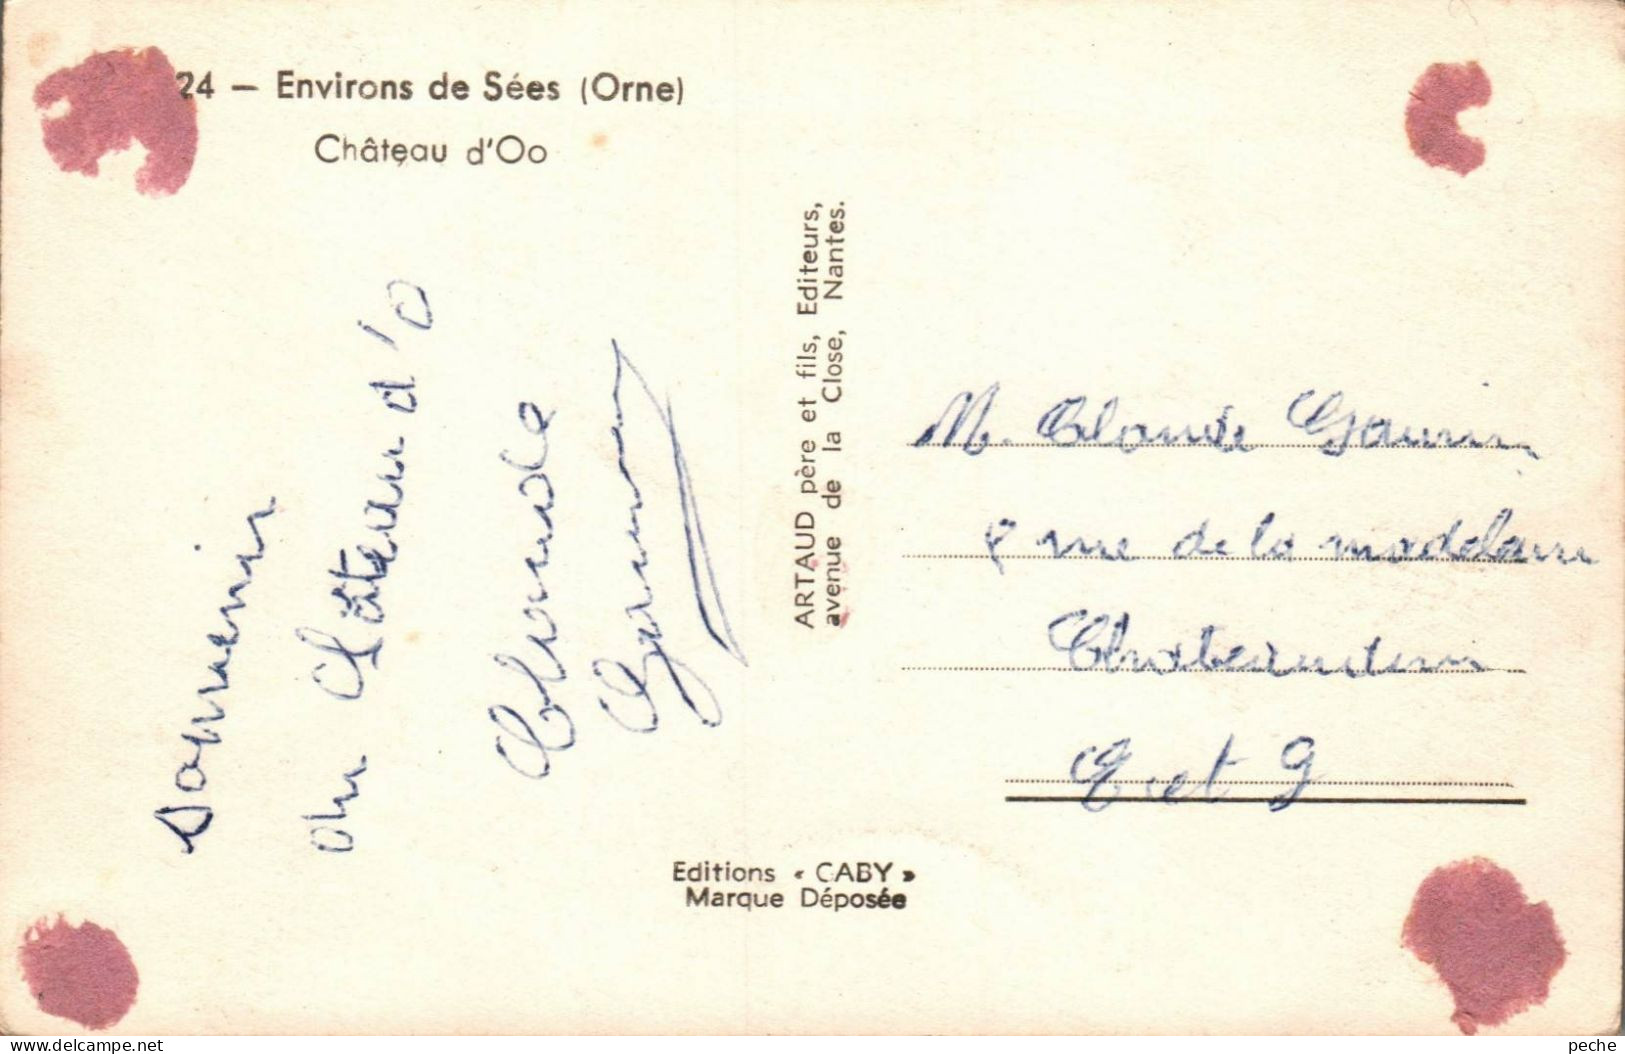 24 — Environs de Sées (Orne)
Château d'Oo
souvenir
du Château d'O
Claude
ARTAUD père et fils, Editeurs,
avenue de la Close, Nantes.
M. Claude
8 rue de la madelaine
Chateaudun
E et L
Editions « GABY »
Marque Déposée
delcampe.net
peche